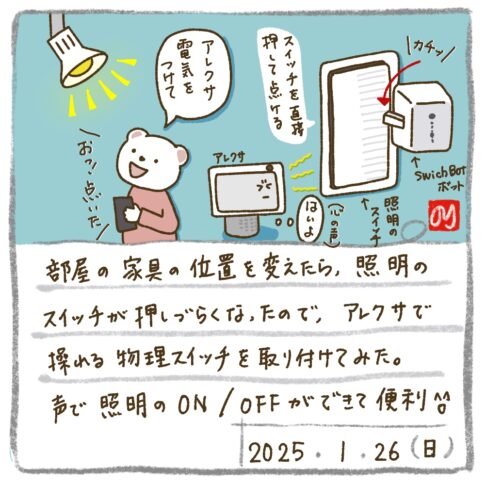 アレクサ
電気を
つけて
スイッチを直接
押して点ける
カチッ
アレクサ
おっ!点いた
はいよ
(心の声)
照明の
スイッチ
SwichBot
ボット
部屋の家具の位置を変えたら、照明の
スイッチが押しづらくなったので、アレクサで
操れる物理スイッチを取り付けてみた。
声で照明のON/OFFができて便利
2025.1.26(日)